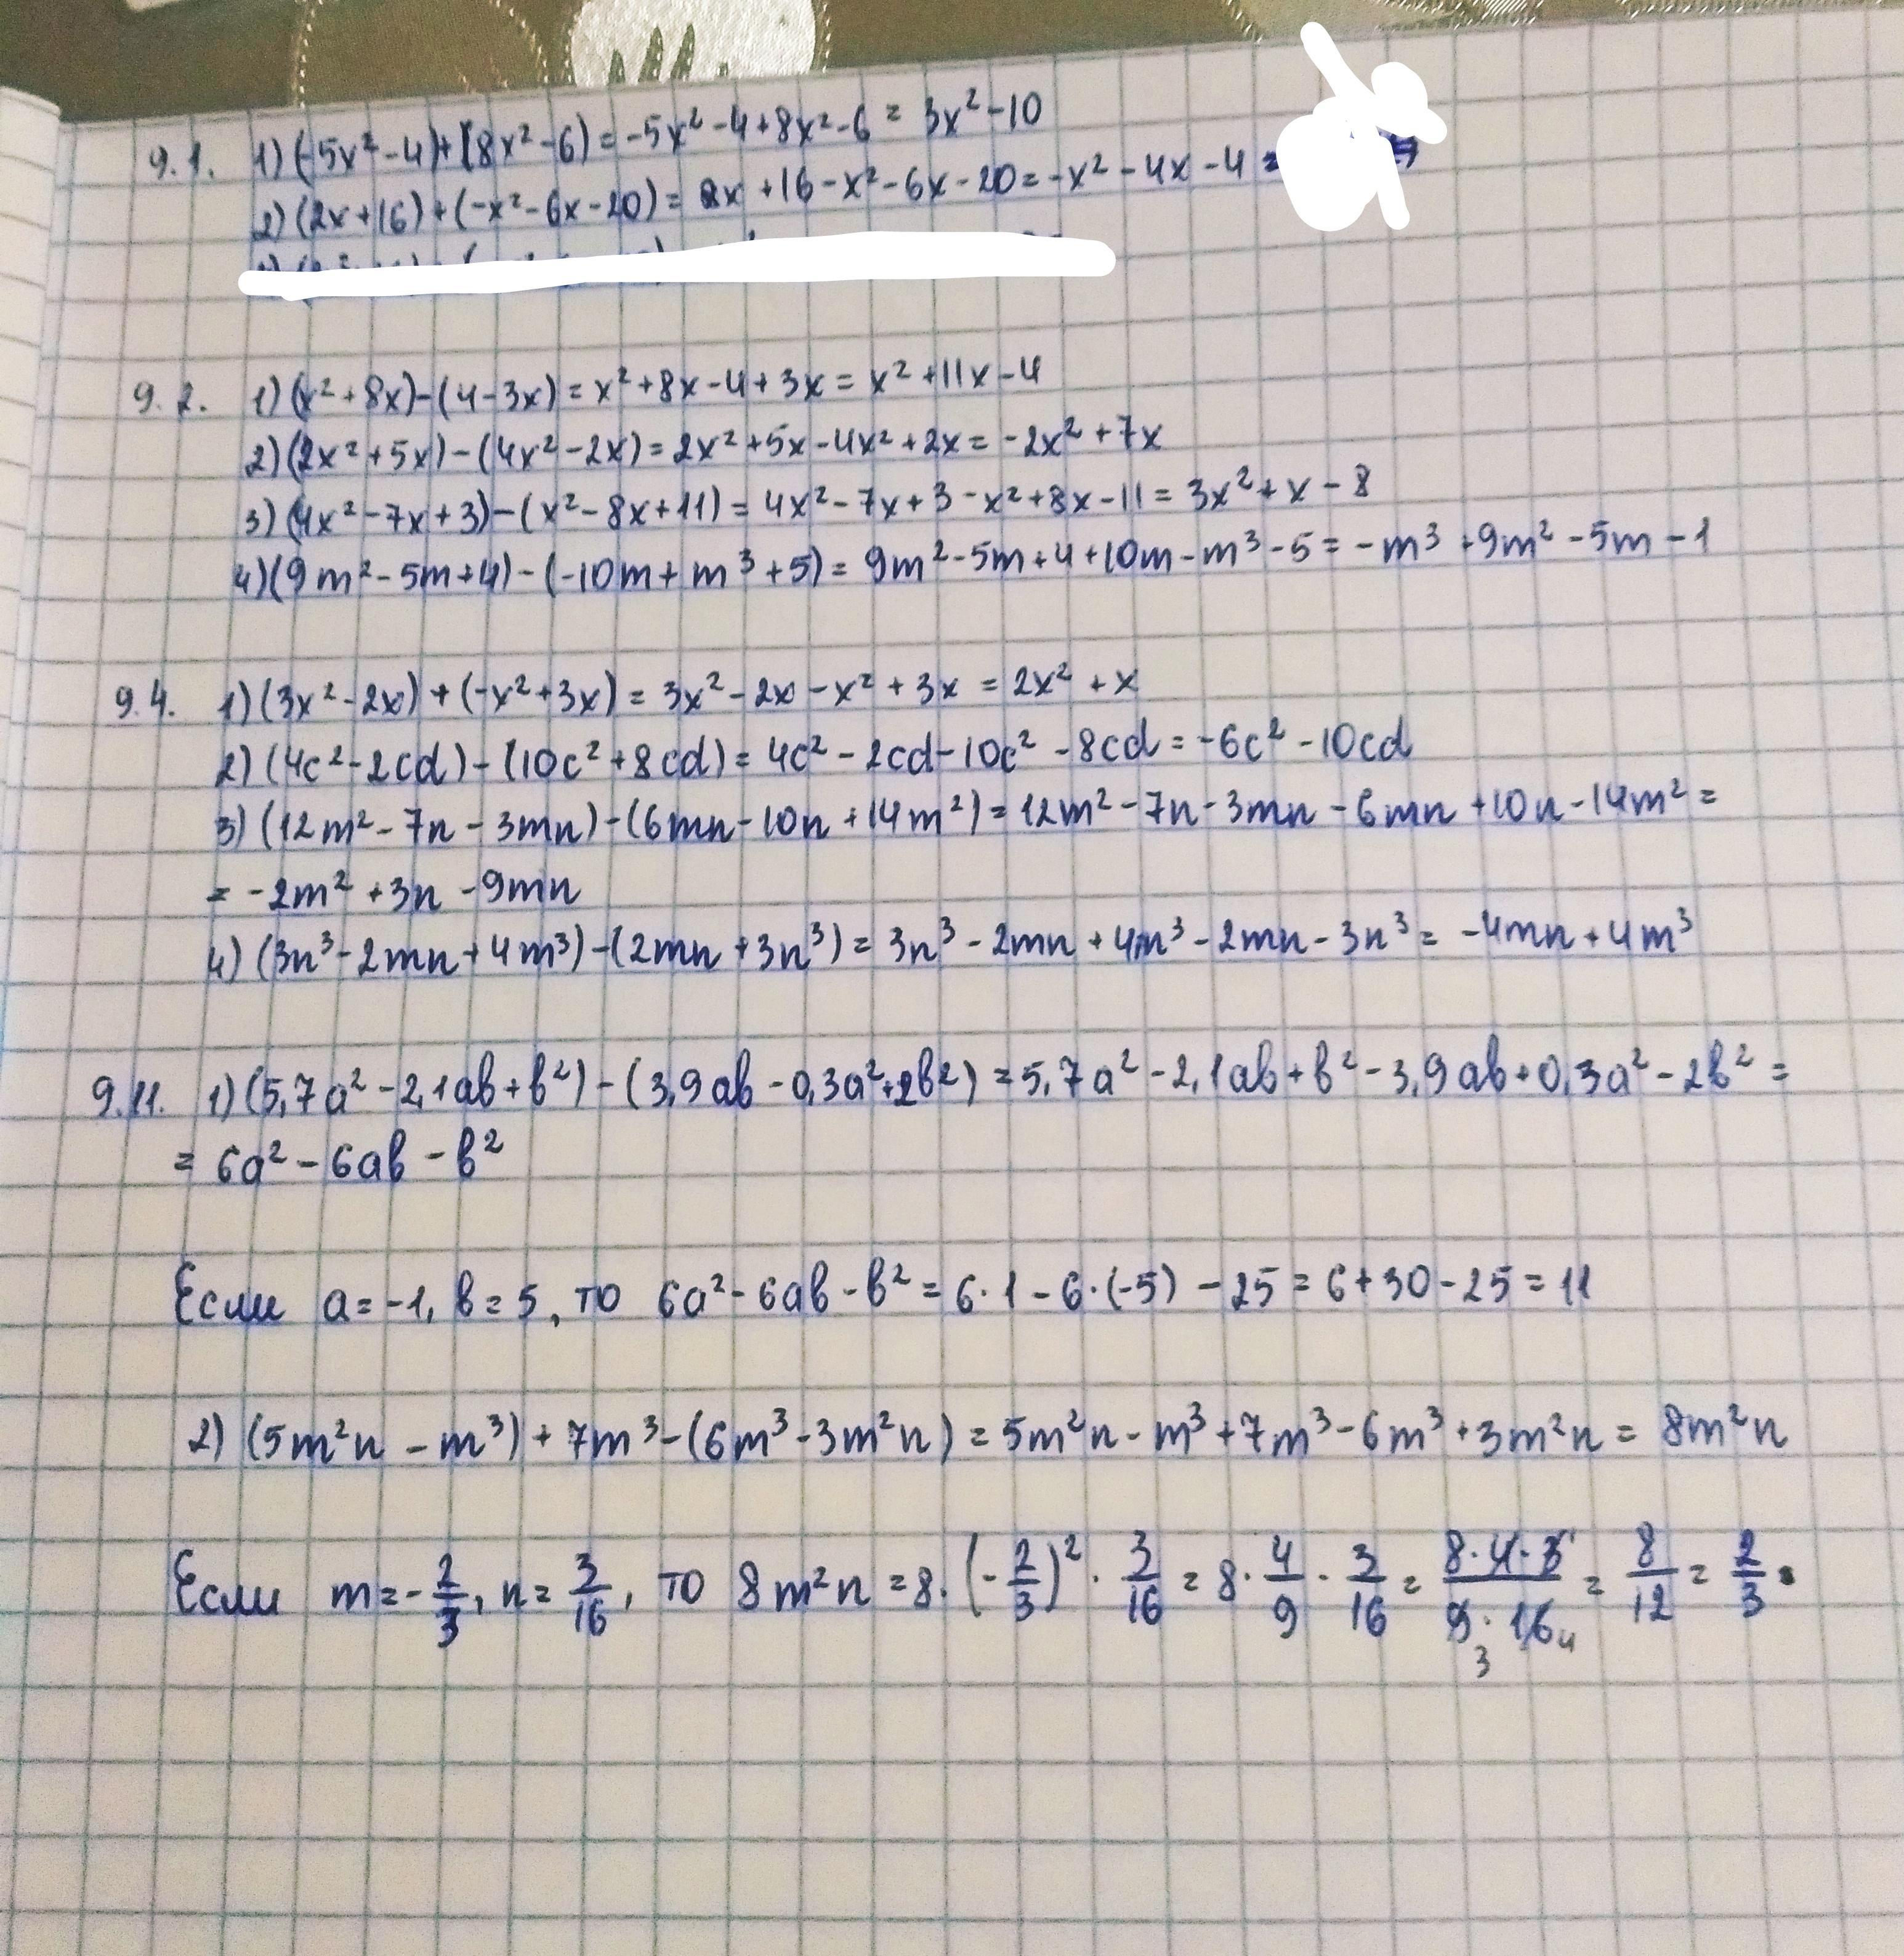 9.1. 1) (-5x²-4)+(8x²-6) = -5x²-4+8x²-6 = 3x²-10
2) (2x+16)+(-x²-6x-20) = 2x+16-x²-6x-20 = -x²-4x-4 =
9.2. 1) (x²+8x)-(4-3x) = x²+8x-4+3x = x²+11x-4
2) (2x²+5x)-(4x²-2x) = 2x²+5x-4x²+2x = -2x²+7x
3) (4x²-7x+3)-(x²-8x+11) = 4x²-7x+3-x²+8x-11 = 3x²+x-8
4) (9m²-5m+4)-(-10m+m³+5) = 9m²-5m+4+10m-m³-5 = -m³+9m²-5m-1
9.4. 1) (3x²-2x)+(-x²+3x) = 3x²-2x-x²+3x = 2x²+x
2) (4c²-2cd)-(10c²+8cd) = 4c²-2cd-10c²-8cd = -6c²-10cd
3) (12m²-7n-3mn)-(6mn-10n+14m²) = 12m²-7n-3mn-6mn+10n-14m² =
= -2m²+3n-9mn
4) (3n³-2mn+4m³)-(2mn+3n³) = 3n³-2mn+4m³-2mn-3n³ = -4mn+4m³
9.11. 1) (5,7a²-2,1ab+b²)-(3,9ab-0,3a²+2b²) = 5,7a²-2,1ab+b²-3,9ab+0,3a²-2b² =
= 6a²-6ab-b²
Если a=-1, b=5, то 6a²-6ab-b² = 6·1-6·(-5)-25 = 6+30-25 = 11
2) (5m²n-m³)+7m³-(6m³-3m²n) = 5m²n-m³+7m³-6m³+3m²n = 8m²n
Если m=-2/3, n=3/16, то 8m²n = 8·(-2/3)²·3/16 = 8·4/9·3/16 = 8·4·3/9·16 = 8/12 = 2/3.